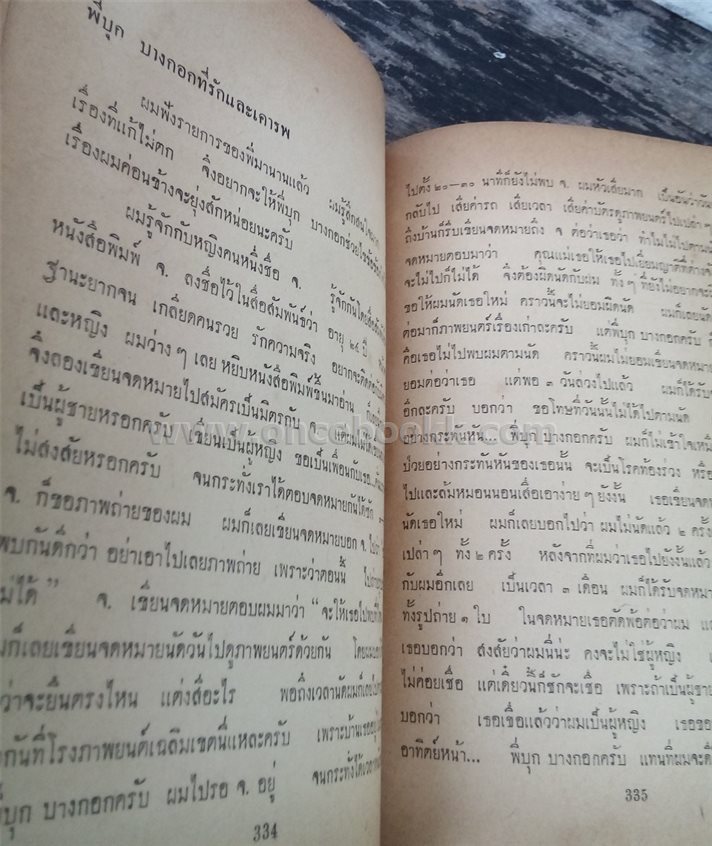 พี่บุก บางกอกที่รักและเคารพ
ผมฟังรายการของพี่มานานแล้ว ผมรู้สึกสนใจ
เรื่องที่แก้ไม่ตก จึงอยากจะให้พี่บุก บางกอกช่วย
เรื่องผมค่อนข้างจะยุ่งสักหน่อยนะครับ
ผมรู้จักกับหญิงคนหนึ่งชื่อ จ. รู้จักกันโดย
หนังสือพิมพ์ จ. ลงชื่อไว้ในสื่อสัมพันธ์ว่า อายุ ๒๕ ปี
ฐานะยากจน เกลียดคนรวย รักความจริง อยากจะ
และหญิง ผมว่างๆ เลย หยิบหนังสือพิมพ์ขึ้นมาอ่าน
จึงลองเขียนจดหมายไปสมัครเป็นมิตรกับ จ. แต่ผมไม่ได้
เป็นผู้ชายหรอกครับ เขียนเป็นผู้หญิง ขอเป็นเพื่อนกับเธอ
ไม่สงสัยหรอกครับ จนกระทั่งเราได้ตอบจดหมายกันได้
จ. ก็ขอภาพถ่ายของผม ผมก็เลยเขียนจดหมายบอก จ.
พบกันดีกว่า อย่าเอาไปเลยภาพถ่าย เพราะว่าตอนนี้
ไม่ได้ " จ. เขียนจดหมายตอบผมมาว่า " จะให้เธอไป
ผมก็เลยเขียนจดหมายนัดวันไปดูภาพยนตร์ด้วยกัน โดย
ว่าจะยืนตรงไหน แต่งสีอะไร พอถึงเวลานัดผมก็
กันที่โรงภาพยนต์เฉลิมเขตนี่แหละครับ เพราะบ้านเธออยู่
พี่บุก บางกอกครับ ผมไปรอ จ. อยู่ จนกระทั่งได้เวลา
334
ไปตั้ง ๒๐—๓๐ นาทีก็ยังไม่พบ จ. ผมหัวเสียมาก เป็นอันว่าวัน
กลับไป เสียค่ารถ เสียเวลา เสียค่าบัตรดูภาพยนตร์ไปเปล่าๆ
ถึงบ้านก็รีบเขียนจดหมายถึง จ ต่อว่าเธอว่า ทำไมไม่ไปตาม
จดหมายตอบมาว่า คุณแม่เธอให้เธอไปเยี่ยมญาติที่ต่าง
จะไม่ไปก็ไม่ได้ จึงต้องผิดนัดกับผม ทั้งๆ ที่ยังไม่อยากจะ
ขอให้ผมนัดเธอใหม่ คราวนี้จะไม่ยอมผิดนัด ผมก็เลยนัด
ต่อมาก็ภาพยนตร์เรื่องเก่าละครับ แต่พี่บุก บางกอกครับ
คือเธอไม่ไปพบผมตามนัด คราวนี้ผมไม่ยอมเขียนจดหมาย
ยอมต่อว่าเธอ แต่พอ ๓ วันล่วงไปแล้ว ผมก็ได้รับ
อีกละครับ บอกว่า ขอโทษที่วันนั้นไม่ได้ไปตามนัด
อย่างกระทันหัน... พี่บุก บางกอกครับ ผมก็ไม่เข้าใจ
ป่วยอย่างกระทันหันของเธอนั้น จะเป็นโรคท้องร่วง หรือ
ไปและล้มหมอนนอนเสื่อเอาง่ายๆ ยังงั้น เธอเขียน
นัดเธอใหม่ ผมก็เลยบอกไปว่า ผมไม่นัดแล้ว ๒ ครั้ง
เปล่าๆ ทั้ง ๒ ครั้ง หลังจากที่ผมว่าเธอไปยังงั้นแล้ว
กับผมอีกเลย เป็นเวลา ๓ เดือน ผมก็ได้รับจดหมาย
ทั้งรูปถ่าย ๑ ใบ ในจดหมายเธอตัดพ้อต่อว่าผม
เธอบอกว่า สงสัยว่าผมนี่น่ะ คงจะไม่ใช่ผู้หญิง
ไม่ค่อยเชื่อ แต่เดี๋ยวนี้ก็ชักจะเชื่อ เพราะถ้าเป็นผู้ชาย
บอกว่า เธอเชื่อแล้วว่าผมเป็นผู้หญิง เธอขอ
อาทิตย์หน้า... พี่บุก บางกอกครับ แทนที่ผมจะ
335